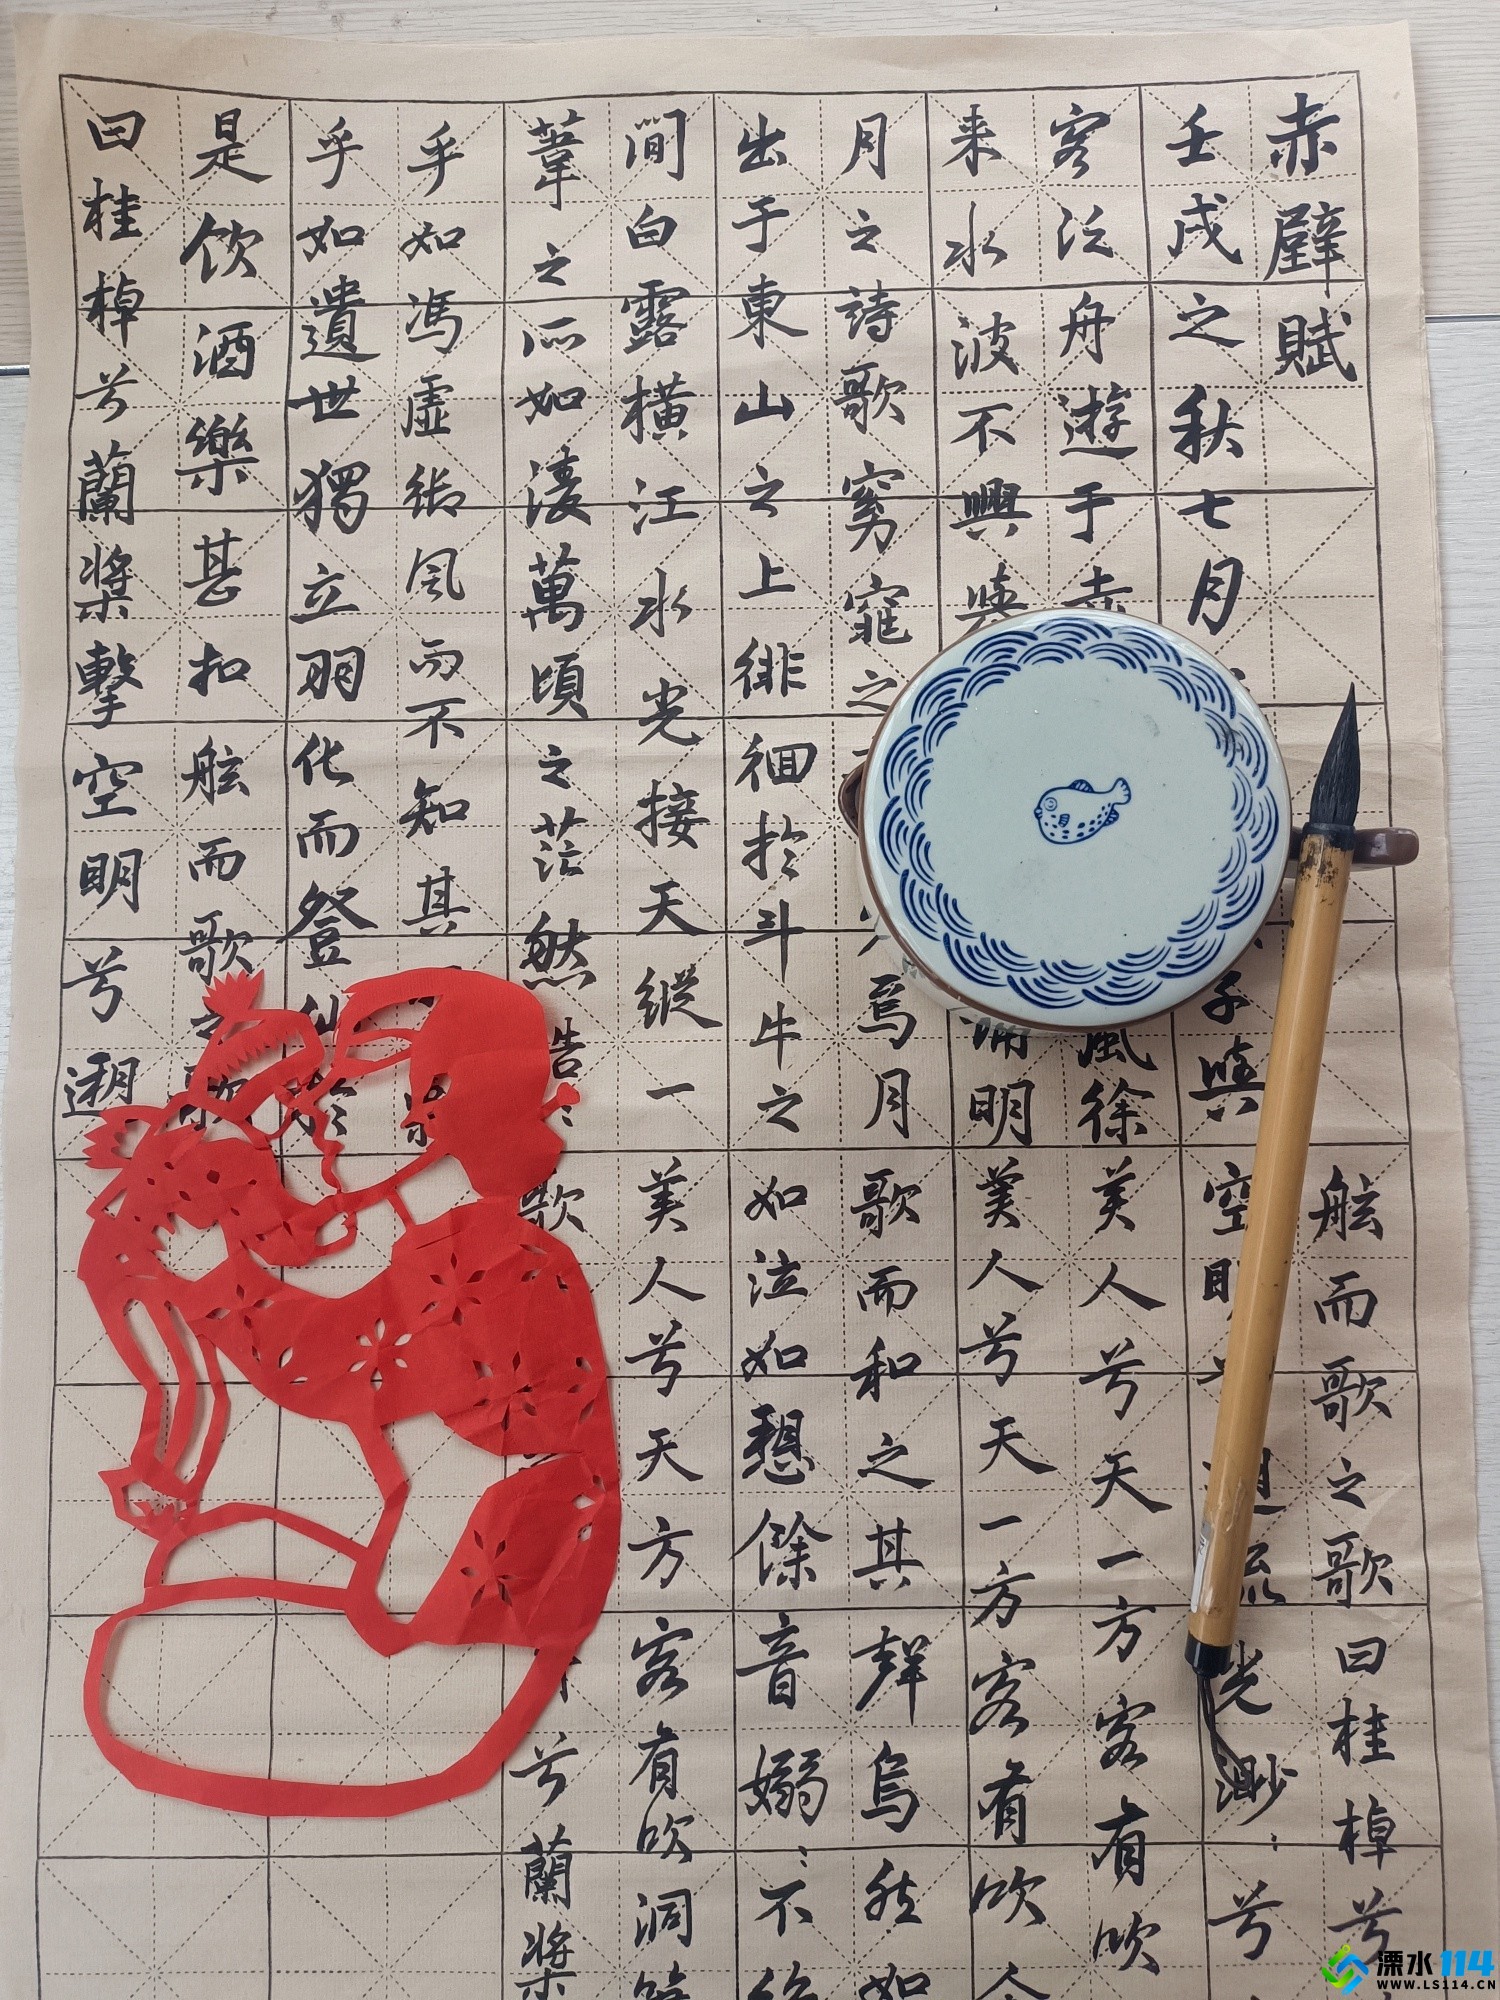 赤壁賦
壬戌之秋七月子與
客泛舟遊于赤風徐
来水波不興舉誦明
月之詩歌窈窕之焉月
出于東山之上徘徊於斗牛之
間白露橫江水光接天縱一
葦之所如淩萬頃之茫然浩:
乎如馮虛御风而不知其
乎如遺世獨立羽化而登仙於
是飲酒樂甚扣舷而歌之歌
曰桂棹兮蘭槳擊空明兮遡
舷而歌之歌曰桂棹兮
空明流光渺:兮
美人兮天一方客有吹
美人兮天一方客有吹
歌而和之其聲烏然如
如泣如憩餘音嫋:不
美人兮天方客有吹洞
歌兮蘭槳
溧水114
WWW.LS114.CN